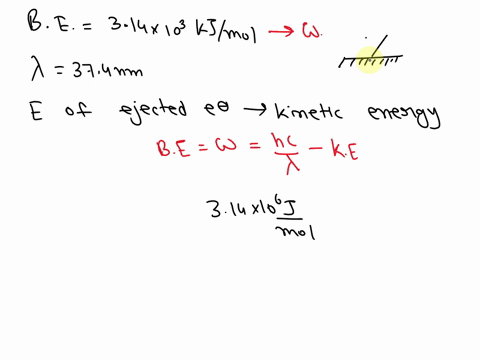 B.E. = 3.14×10³ KJ/mol → ω.
λ = 37.4nm
E of ejected e⊖ → kinetic energy
B.E = ω = hc/λ - K.E
3.14×10⁶ J/mol